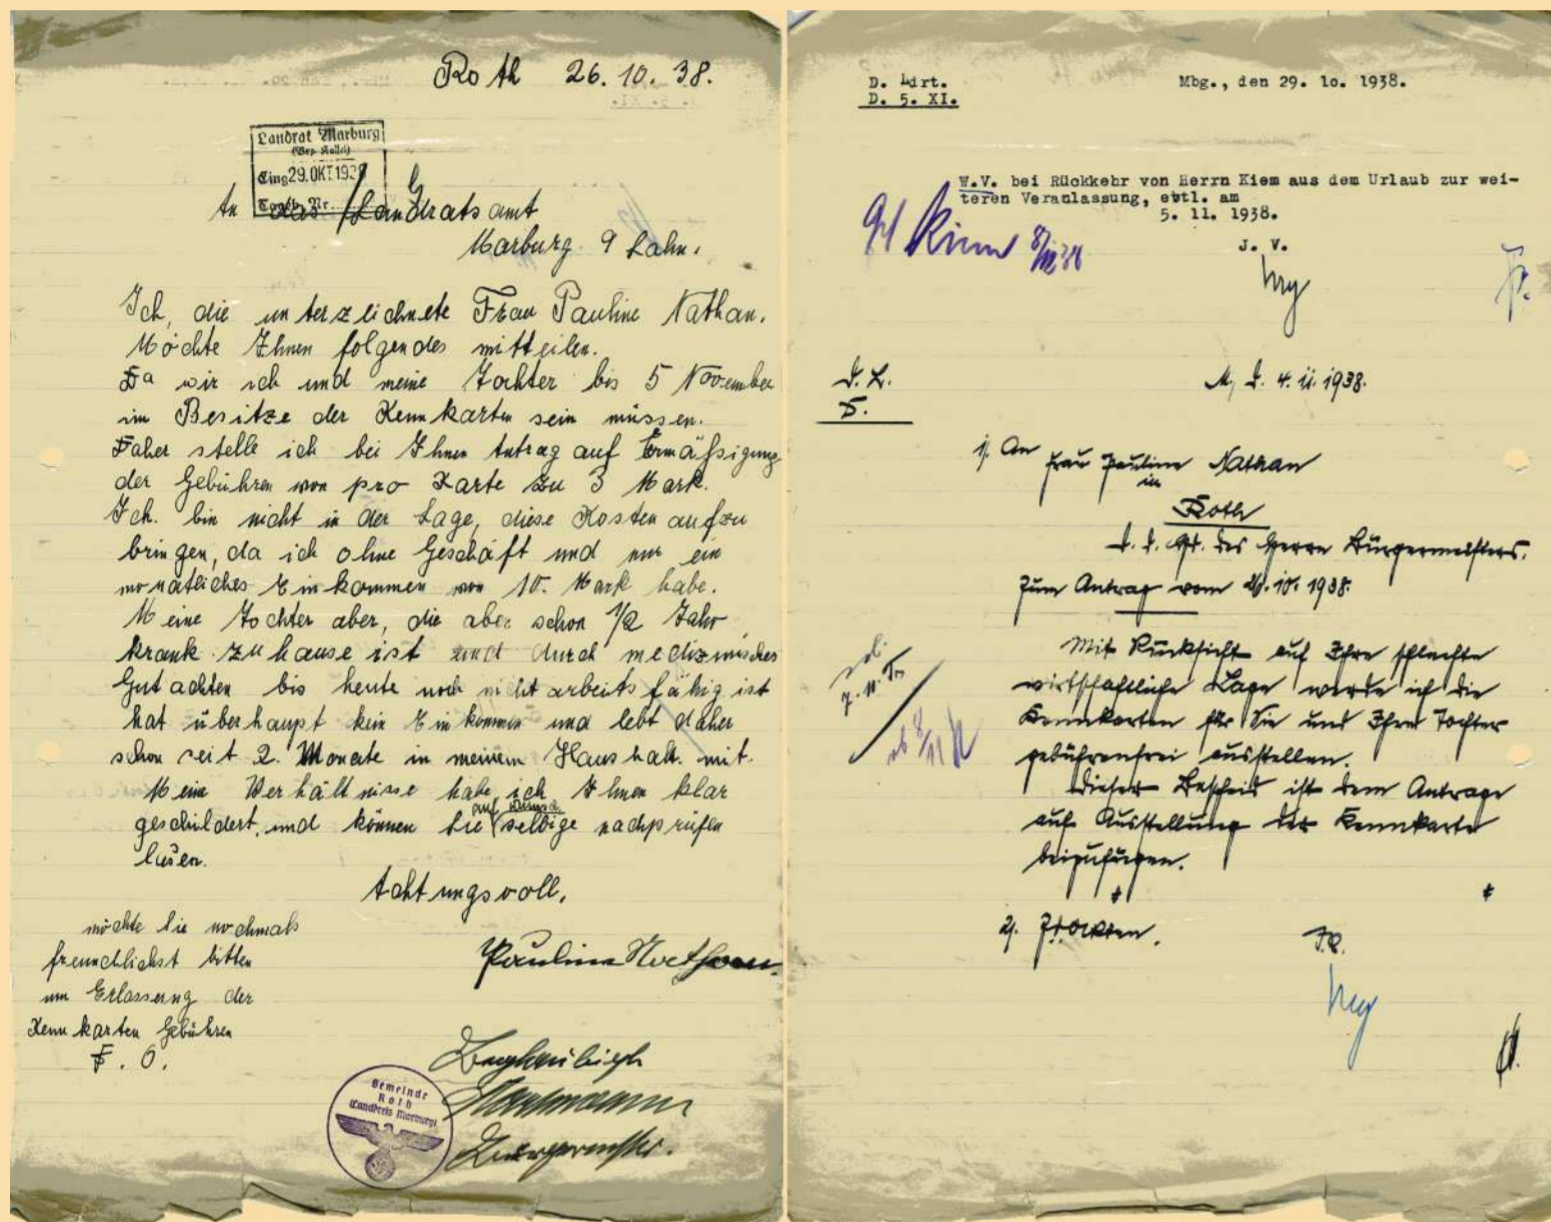 Roth 26.10.38.
Landrat Marburg
(Bez. Kassel)
Eing 29.OKT.193
Tagb. Nr.
An das Landratsamt
Marburg a Lahn.
Ich, die unterzeichnete Frau Pauline Nathan.
Möchte Ihnen folgendes mitteilen.
Da wir ich und meine Tochter bis 5 November
im Besitze der Kennkarten sein müssen.
Daher stelle ich bei Ihnen Antrag auf Ermäßigung
der Gebühren von pro Karte zu 3 Mark.
Ich. bin nicht in der Lage, diese Kosten aufzu
bringen, da ich ohne Geschäft und nur ein
monatliches Einkommen von 10. Mark habe.
Meine Tochter aber, die aber schon 1/2 Jahr
krank zuhause ist und durch medizinisches
Gutachten bis heute noch nicht arbeitsfähig ist
hat überhaupt kein Einkommen und lebt daher
schon seit 2. Monate in meinem Haushalt. mit.
Meine Verhältnisse habe ich Ihnen klar
geschildert, und können Sie auf Wunsch selbige nachprüfen
lasen.
Achtungsvoll.
Pauline Nathan.
möchte Sie nochmals
freundlichst bitten
um Erlassung der
Kennkarten Gebühren
D. O.
Beglaubigt
Bürgermeister.
Gemeinde
Roth
Landkreis Marburg
D. Ldrt.
D. 5. XI.
Mbg., den 29. 1o. 1938.
W.V. bei Rückkehr von Herrn Kiem aus dem Urlaub zur wei-
teren Veranlassung, evtl. am
5. 11. 1938.
J. V.
D. L.
D.
M, d. 4. 11. 1938.
1). An
Frau Pauline Nathan
in
Roth
d. d. Hd. des Herrn Bürgermeisters.
Zum Antrag vom 26. 10. 1938.
Mit Rücksicht auf Ihre schlechte
wirtschaftliche Lage werde ich die
Kennkarten für Sie und Ihre Tochter
gebührenfrei ausstellen.
Dieser Bescheid ist dem Antrage
auf Ausstellung der Kennkarte
beizufügen.
2).
J.V.